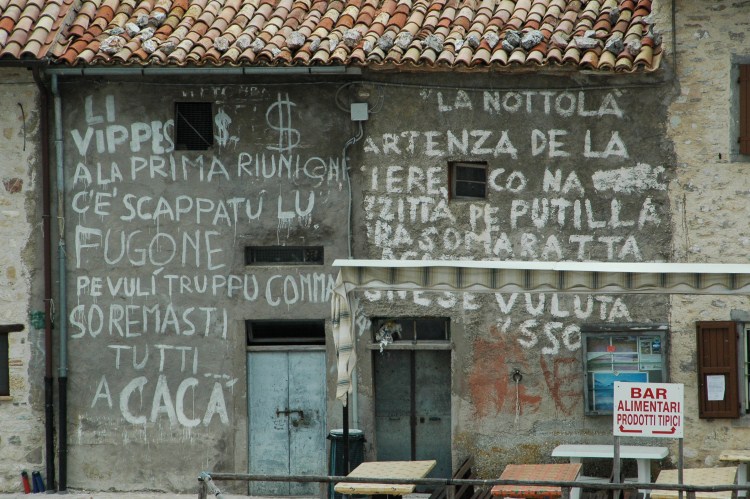 LI
VIPPES $ $
A LA PRIMA RIUNIONE
C'È SCAPPATU LU
FUGONE
PE VULÍ TRUPPU COMMA
SO REMASTI
TUTTI
A CACÀ
"LA NOTTOLA"
ARTENZA DE LA
IERE, CO NA
ZZITTA PE PUTILLA
RASOMARATTA
VULUTA
SSO
BAR
ALIMENTARI
PRODOTTI TIPICI